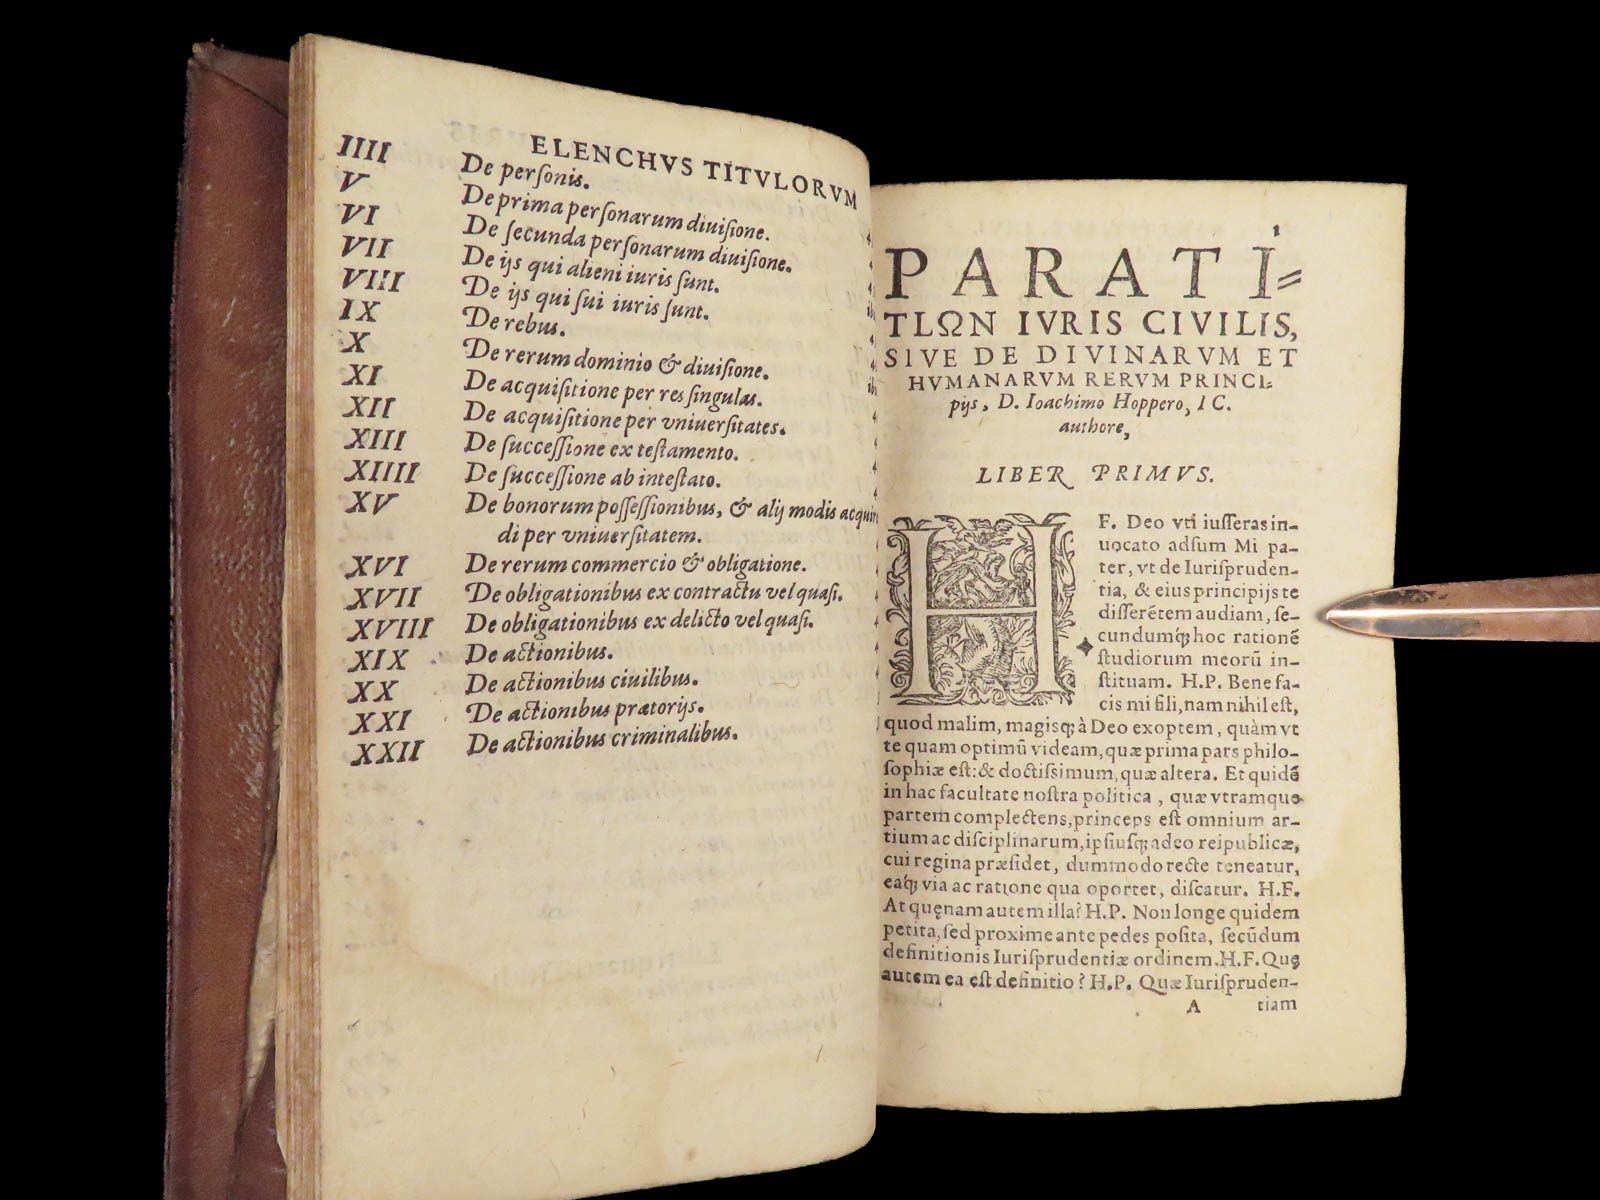 ELENCHVS TITVLORVM
IIII De personis.
V De prima personarum diuisione.
VI De secunda personarum diuisione.
VII De ijs qui alieni iuris sunt.
VIII De ijs qui sui iuris sunt.
IX De rebus.
X De rerum dominio & diuisione.
XI De acquisitione per res singulas.
XII De acquisitione per vniuersitates.
XIII De successione ex testamento.
XIIII De successione ab intestato.
XV De bonorum possessionibus, & alij modis acquirẽ
di per vniuersitatem.
XVI De rerum commercio & obligatione.
XVII De obligationibus ex contractu vel quasi.
XVIII De obligationibus ex delicto vel quasi.
XIX De actionibus.
XX De actionibus ciuilibus.
XXI De actionibus prætorijs.
XXII De actionibus criminalibus.
1
PARATI=
TLΩN IVRIS CIVILIS,
SIVE DE DIVINARVM ET
HVMANARVM RERVM PRINCI=
pijs, D. Ioachimo Hoppero, IC.
authore,
LIBER PRIMVS.
HF. Deo vti iusseras in-
uocato adsum Mi pa-
ter, vt de Iurispruden-
tia, & eius principijs te
differẽtem audiam, se-
cundumq; hoc rationẽ
studiorum meorũ in-
stituam. H.P. Bene fa-
cis mi fili, nam nihil est,
quod malim, magisq; à Deo exoptem, quàm vt
te quam optimũ videam, quæ prima pars philo-
sophiæ est: & doctissimum, quæ altera. Et quidẽ
in hac facultate nostra politica, quæ vtramque
partem complectens, princeps est omnium ar-
tium ac disciplinarum, ipsiusq; adeo reipublicæ,
cui regina præsidet, dummodo recte teneatur,
eaq; via ac ratione qua oportet, discatur. H.F.
At quęnam autem illa? H.P. Non longe quidem
petita, sed proxime ante pedes posita, secũdum
definitionis Iurisprudentiæ ordinem. H.F. Quę
autem ea est definitio? H.P. Quæ Iurispruden-
A tiam